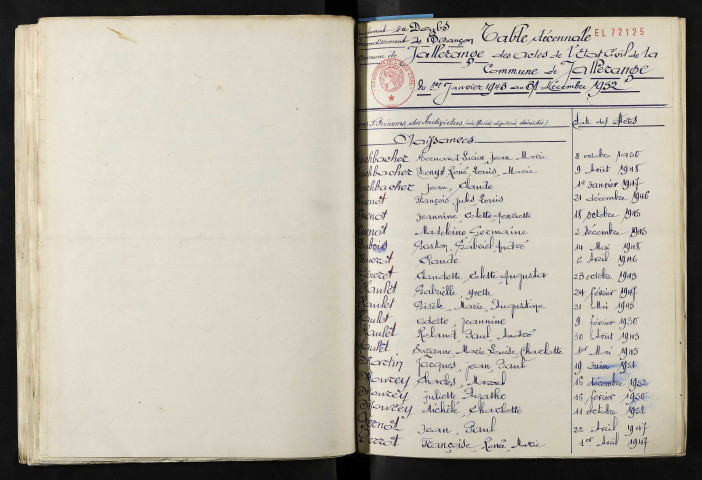 du Doubs
de Besançon
Commune de Jallerange
Table décennale EL 72125
des actes de l'Etat Civil de la
Commune de Jallerange
Du 1er Janvier 1943 au 31 Décembre 1952
Prénoms des Individus Date des Actes
Naissances
Bernard Lucien, Jean Marie 8 octobre 1950
Denys René, Louis, Marie 9 Août 1948
Jean, Claude 1er Janvier 1947
François, Jules, Louis 21 décembre 1946
Jeannine Colette 18 octobre 1945
Madeleine Germaine 2 décembre 1945
Gaston, Gabriel André 14 Mai 1948
Claude 6 Avril 1946
Claudette, Colette Augusta 23 octobre 1943
Gabrielle, Yvette 24 février 1947
Gisèle, Marie, Augustine 21 Mai 1943
Odette, Jeannine 9 février 1950
Roland, Paul, André 30 Août 1943
Suzanne Marie Louise Charlotte 1er Mai 1945
Martin Jacques, Jean Paul 19 Juin 1951
Mourey Charles, Marcel 16 décembre 1952
Mourey Juliette Agathe 15 février 1950
Mourey Michèle, Charlotte 11 octobre 1951
Jean, Paul 22 Avril 1947
Françoise, Renée, Marie 1er Avril 1947